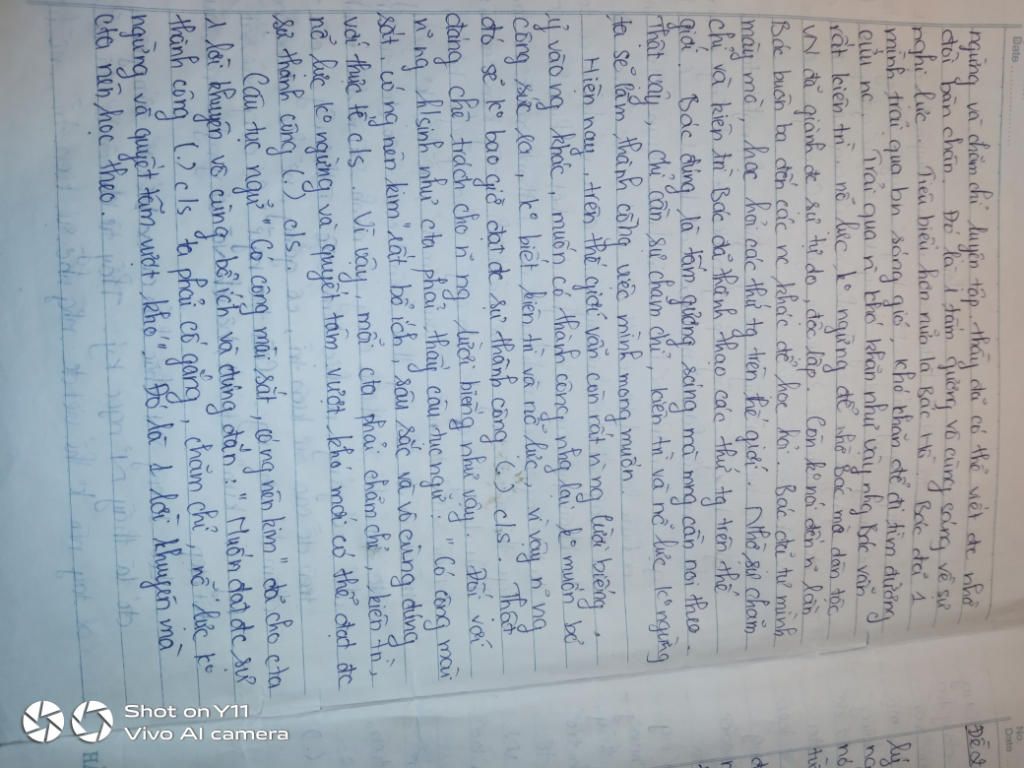 Date
ngừng và chăm chỉ luyện tập, thầy đã có thể viết đc nhờ
đôi bàn chân. Đó là 1 tấm gương vô cùng sáng về sự
nghị lực. Tiêu biểu hơn nữa là Bác Hồ. Bác đã 1
mình trải qua bn sóng gió, khó khăn để đi tìm đường
cứu nc. Trải qua n~ khó khăn như vậy nhg Bác vẫn
rất kiên trì, nỗ lực k° ngừng để nhờ Bác mà dân tộc
VN đã giành đc sự tự do, độc lập. Còn k° nói đến n~ lần
Bác buôn ba đến các nc khác để học hỏi. Bác đã tự mình
mày mò, học hỏi các thứ tg trên thế giới. Nhờ sự chăm
chỉ và kiên trì Bác đã thành thạo các thứ tg trên thế
giới. Bác đúng là tấm gương sáng mà mng cần noi theo.
Thật vậy, chỉ cần sự chăm chỉ, kiên trì và nỗ lực k° ngừng
ta sẽ làm thành công việc mình mong muốn.
Hiện nay, trên thế giới vẫn còn rất n~ ng lười biếng
ỷ vào ng khác, muốn có thành công nhg lại k° muốn bỏ
công sức ra, k° biết kiên trì và nỗ lực, vì vậy n~ ng
đó sẽ k° bao giờ đạt đc sự thành công (.) c/s. Thật
đáng chê trách cho n~ ng lười biếng như vậy. Đối với
n~ ng h/sinh như cta phải thấy câu tục ngữ: "Có công mài
sắt, có ng nên kim" rất bổ ích, sâu sắc và vô cùng đúng
với thực tế c/s. Vì vậy, mỗi cta phải chăm chỉ, kiên trì,
nỗ lực k° ngừng và quyết tâm vượt khó mới có thể đạt đc
sự thành công (.) c/s.
Câu tục ngữ "Có công mài sắt, có ng nên kim" đã cho cta
1 lời khuyên vô cùng bổ ích và đúng đắn: "Muốn đạt đc sự
thành công (.) c/s ta phải cố gắng, chăm chỉ, nỗ lực k°
ngừng và quyết tâm vượt khó". Đó là 1 lời khuyên mà
cta nên học theo.
No
Date
Đề 2
Shot on Y11
Vivo AI camera